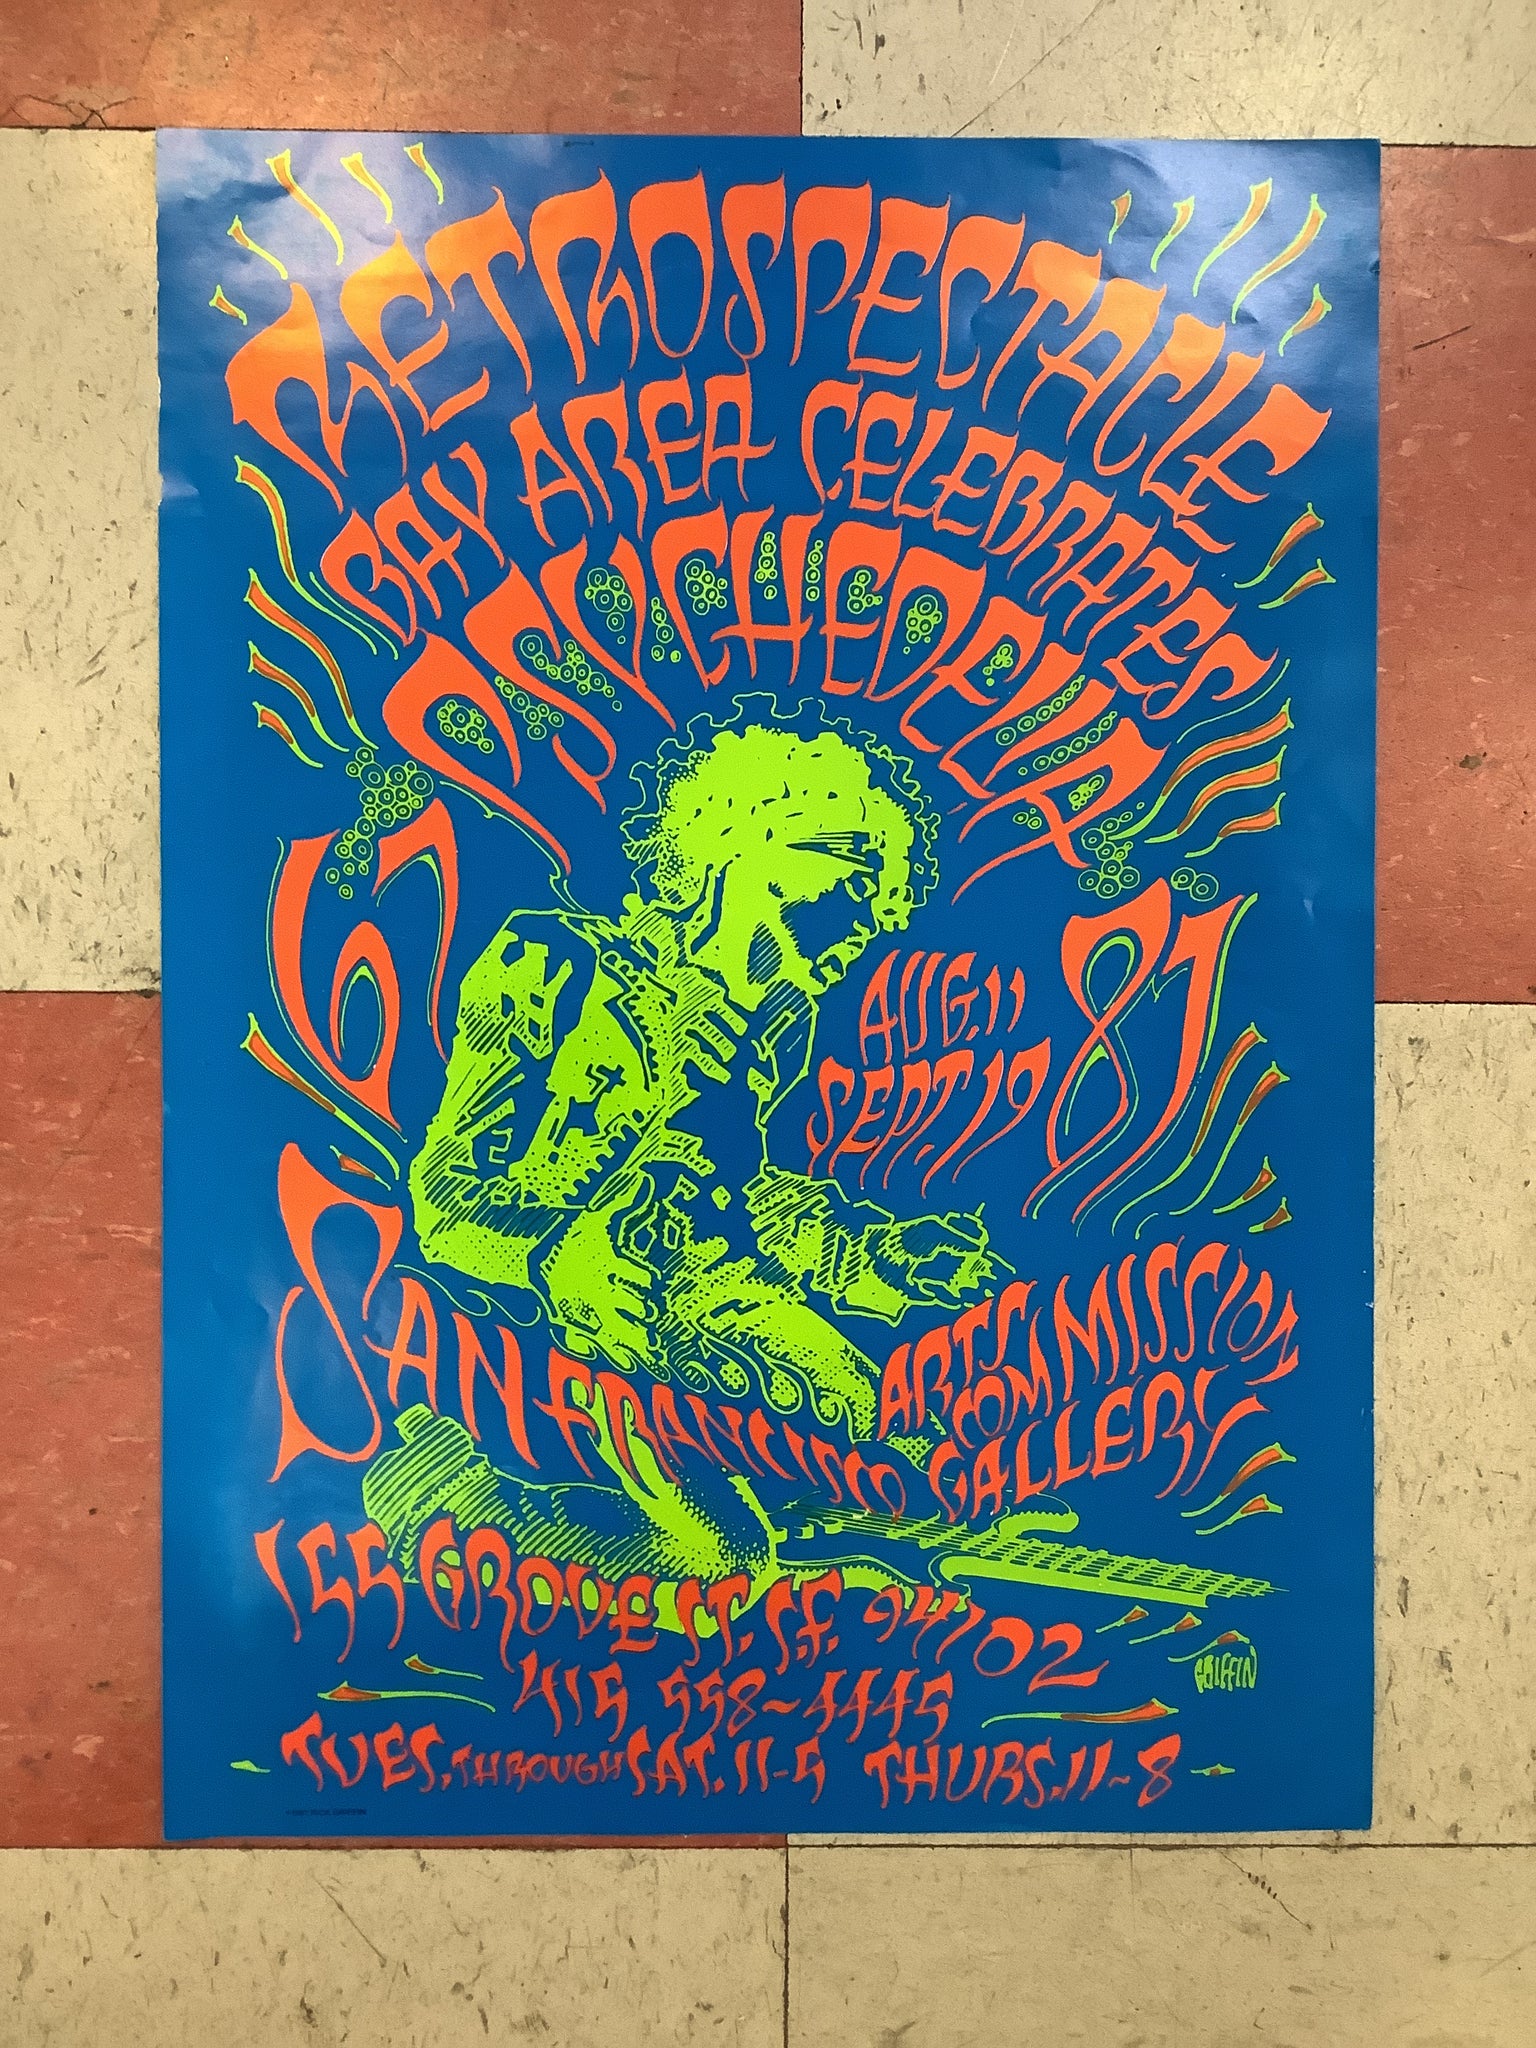 METROSPECTACLE
BAY AREA CELEBRATES
PSYCHEDELIA
67
87
AUG. 11
SEPT. 19
SAN FRANCISCO
ARTS
COMMISSION
GALLERY
155 GROVE ST. S.F. 94102
415 558~4445
TUES. THROUGH SAT. 11-5 THURS. 11~8
GRIFFIN